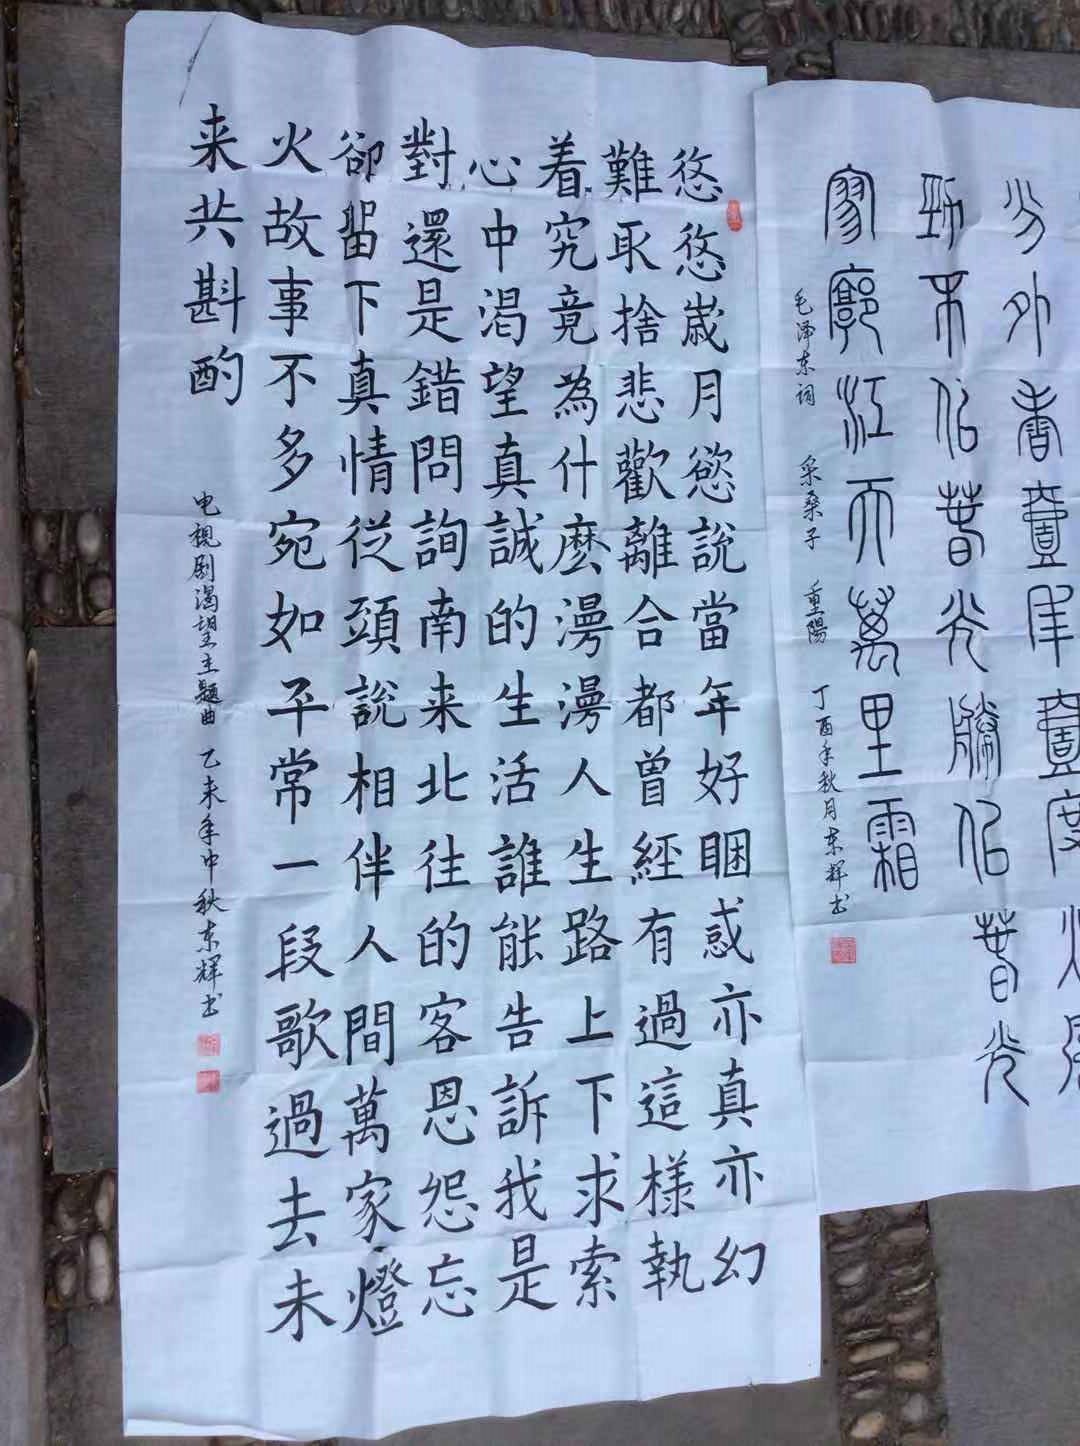 悠悠歲月慾說當年好睏惑亦真亦幻
難取捨悲歡離合都曾經有過這樣執
着究竟為什麼漫漫人生路上下求索
心中渴望真誠的生活誰能告訴我是
對還是錯問詢南来北往的客恩怨忘
卻留下真情從頭說相伴人間萬家燈
火故事不多宛如平常一段歌過去未
来共斟酌
电视剧渴望主题曲 乙未年中秋东辉书
分外香壹年壹度
勁不似春光勝似春光
寥廓江天萬里霜
毛泽东词 采桑子 重陽 丁酉年秋月东辉书